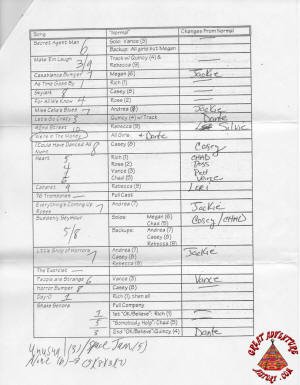 Song "Normal" Changes From Normal
Secret Agent Man Solo: Vance (3)
6 Backup: All girls but Megan
Make 'Em Laugh 3/9 Track w/ Quincy (4) &
Rebecca (9)
Casablanca Bumper 7 Megan (6) Jackie
As Time Goes By Rich (1)
Skylark 8 Casey (8)
For All We Know 4 Rose (2)
Miss Celie's Blues 7 Andrea (7) Jackie
Let's Go Crazy 3 Quincy (4) w/ Track Dante
42nd Street 10 Rebecca (9) Silvie
We're In The Money All Girls + Dante
I Could Have Danced All 8 Casey (8) Casey
Night
Heart 5 Rich (1) CHAD
4 Rose (2)
2 Vance (3)
6 Chad (5) Vance
Cabaret 9 Rebecca (9) Lori
76 Trombones Full Cast
Everything's Coming Up Andrea (7) Jackie
Roses 7
Suddenly Seymour Solos: Megan (6) Casey/CHAD
5/8 Chad (5)
Backups: Andrea (7)
Casey (8)
Rebecca (9)
Little Shop of Horrors 7 Andrea (7) Jackie
Casey (8)
Rebecca (9)
The Exorcist
People are Strange 6 Vance (3) Vance
Horror Bumper 8 Casey (8)
Day-O 1 Rich (1), then all
Shake Senora Full Company
1 1st "OK/Believe": Rich (1)
"Somebody Help": Chad (5)
3 2nd "OK/Believe": Quincy (4) Dante
Unusual (3) / Space Jam (5)
GREAT ADVENTURE
HISTORY.COM